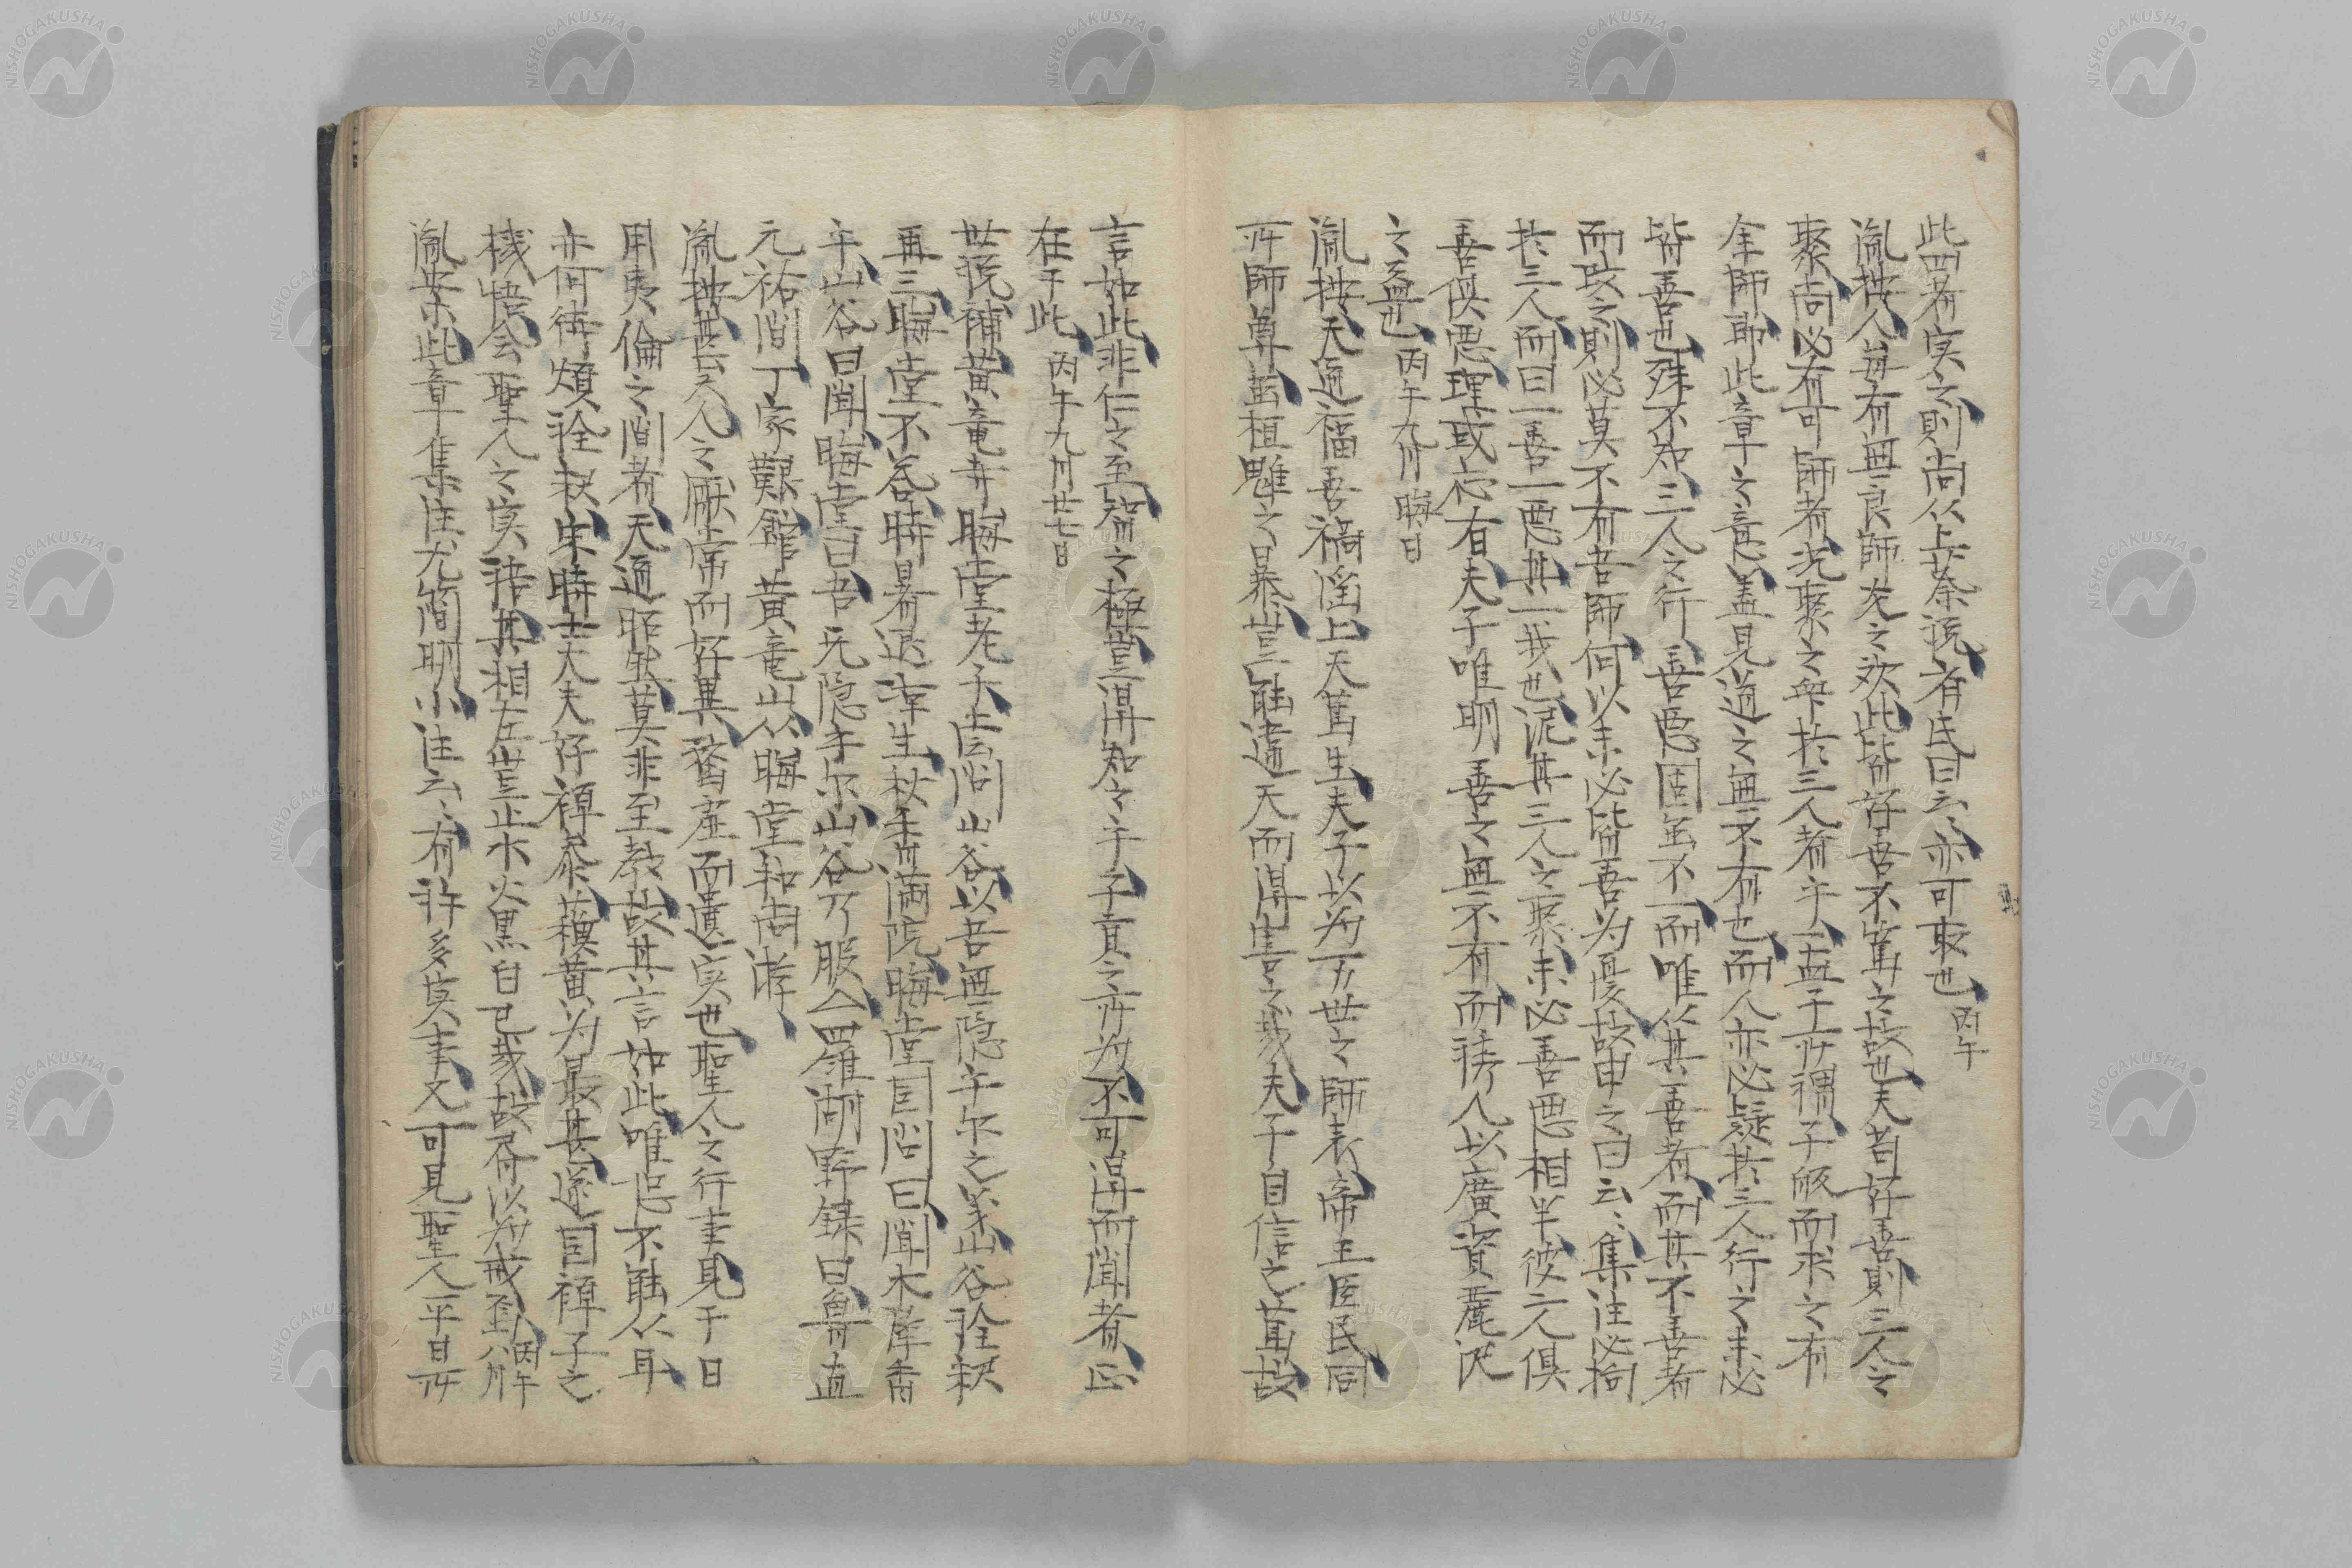 此四者実之則尚从上蔡説有氏曰云〻亦可取也丙午
胤按人毎有無良師友之欢此皆好善不篤之故也夫苟好善則三人之
聚尚必有可師者况聚之衆於三人者乎孟子所謂子皈而求之有
余師即此章之意盖見道之無不有也而人亦必疑於三人行之未必
皆善也殊不知三人之行善悪固然不一而唯从其善者而其不善者
而改之則必莫不有吾師何以未必皆善为憂故申之曰云〻集注必拘
於三人而曰一善一悪其一我也泥其三人之聚未必善悪相半彼二人倶
善倶悪理或応有夫子唯明善之無不有而待人以廣資麗沢
之益也丙午九月晦日
胤按天道福善禍淫上天篤生夫子以为万世之師表帝王臣民同
所師尊故桓魋之暴豈能違天而得害之哉夫子自信之篤故
言如此非仁之至智之極豈得知之乎子貢之所为不可得而聞者正
在于此丙午九月廿七日
世説補黄竜寺晦堂老子嘗問山谷以吾無隠乎尔之義山谷詮釈
再三晦堂不答時暑退凉生秋香満院晦堂因問曰聞木犀香
乎山谷曰聞晦堂曰吾无隠乎尔山谷乃服△羅湖野録曰魯直
元祐間丁家艱館黄竜山从晦堂和尚游
胤按甚矣人之厭常而好異務虚而遺実也聖人之行事見于日
用夷倫之間者天道昭然莫非至教故其言如此唯恐不能从耳
亦何待煩詮釈宋時士大夫好禅蘇黄为最甚遂因禅子之
機悟会聖人之実語其相左豈止水火黒白已哉故及以为戒丙午八月
胤案此章集注尤簡明小注云〻有許多実事又可見聖人平日所